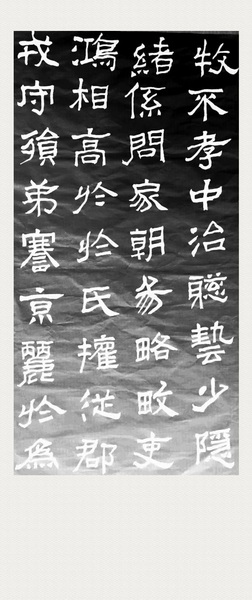 牧不孝中治聽藝少隱
緒係問家朝略畋吏
鴻相高於於氏從郡
戎守弟京麗於為